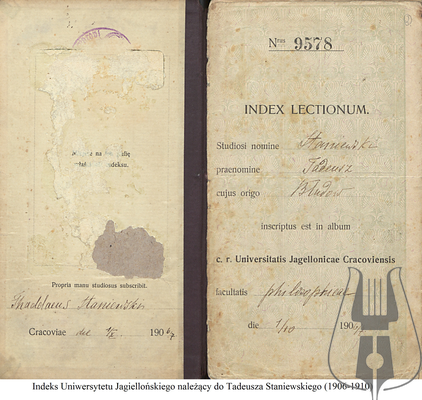 na
deksu.
Propria manu studiosus subscribit.
Thaddaeus Staniewski
Cracoviae die 190
Nrus 9578
INDEX LECTIONUM.
Studiosi nomine Staniewski
praenomine Tadeusz
cujus origo
inscriptus est in album
c. r. Universitatis Jagellonicae Cracoviensis
facultatis philosophicae
die 1/10 190
Indeks Uniwersytetu Jagiellońskiego należący do Tadeusza Staniewskiego (1906-1910)